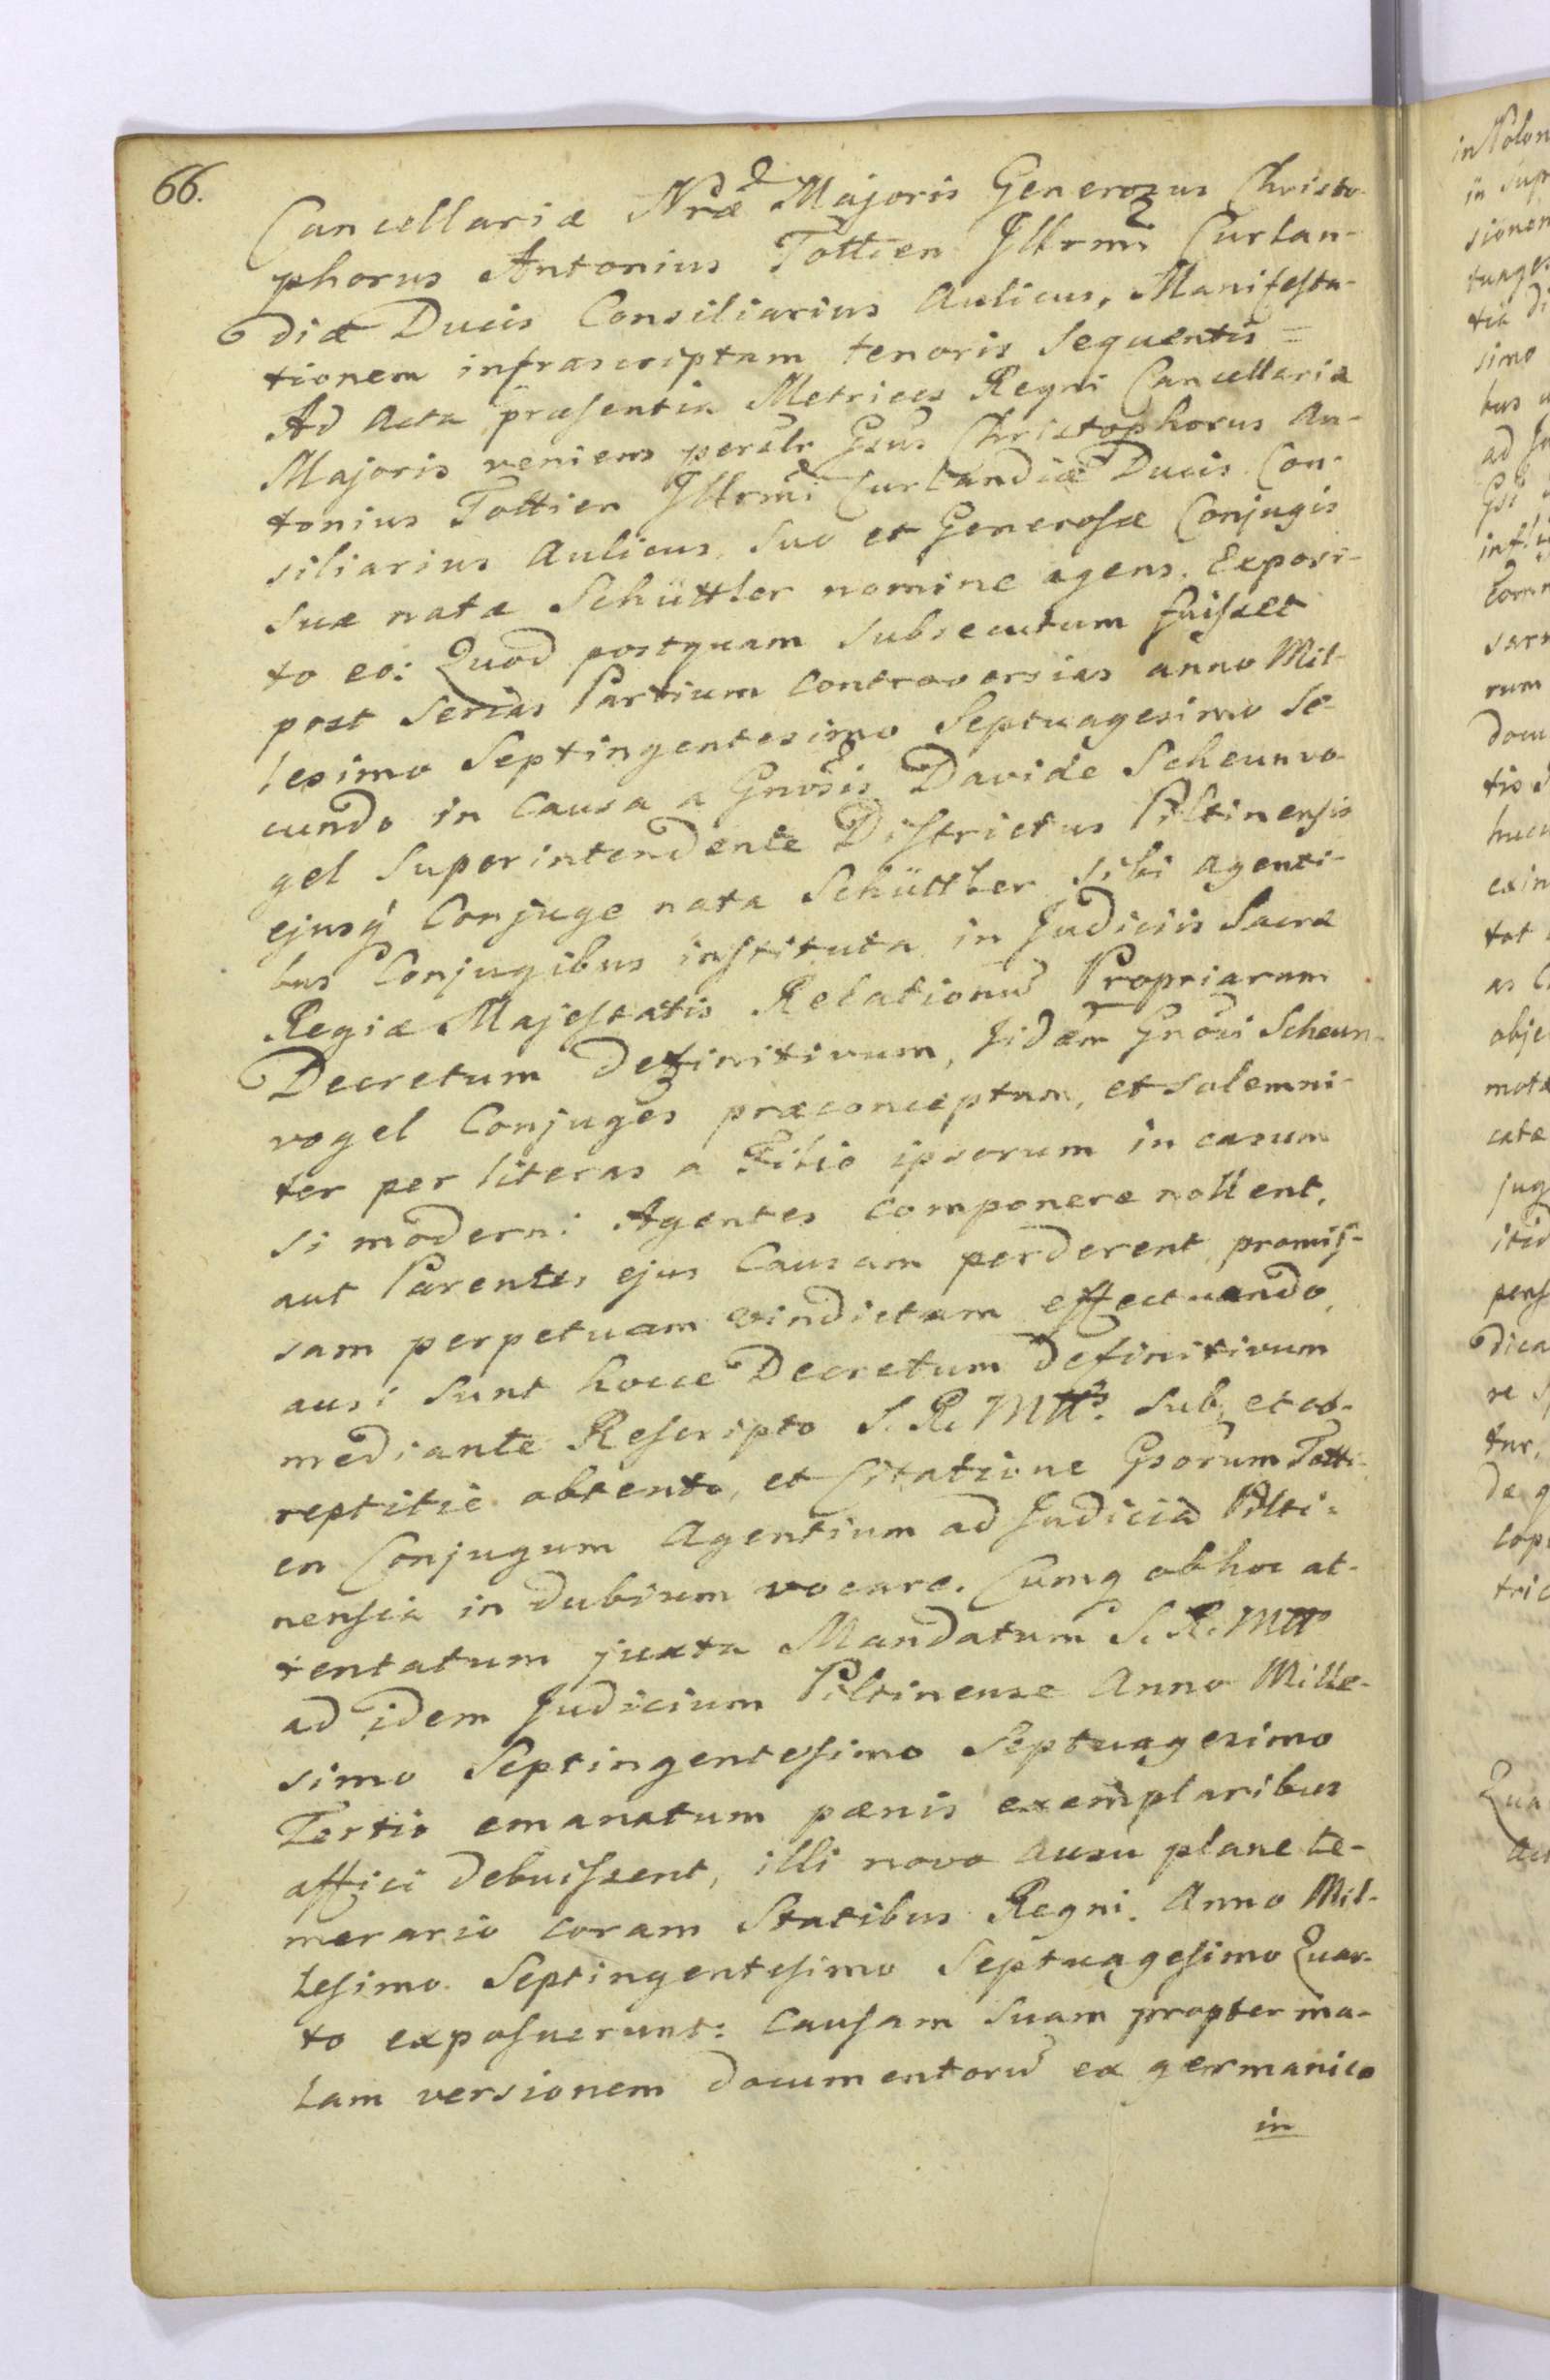 66.
Cancellariæ Nræ Majoris Generosus Christo-
phorus Antonius Tottien Illrmi Curlan-
diæ Ducis Consiliarius Aulicus, Manifesta-
tionem infrascriptam tenoris sequentis =
Ad Acta præsentia Metrices Regni Cancellariæ
Majoris veniens perslr Gsus Christophorus An-
tonius Tottien Illrmi Curlandiæ Ducis Con-
siliarius Aulicus suo et Generosæ Conjugis
suæ natæ Schüttler nomine agens. Exposi-
to eo: Quod postquam subsecutum fuisset
post serias Partium Controversias anno Mil-
lesimo Septingentesimo Septuagesimo Se-
cundo in Causa a Gnosis Davide Scheunvo-
gel Superintendente Districtus Piltinensis
ejusq Conjuge nata Schüttler sibi agenti-
bus Conjugibus instituta in Judiciis Sacræ
Regiæ Majestatis Relationū Propriarum
Decretum definitivum, Iidem Gnosi Scheun-
vogel Conjuges præconceptum, et solemni-
ter per literas a Filio ipsorum in casum
si moderni Agentes componere nollent,
aut Parentes ejus Causam perderent, promis-
sam perpetuam vindictam effectuando,
ausi sunt hocce Decretum definitivum
mediante Rescripto S. R. Mttis sub et ob-
reptitie obtento, et Citatione Gsorum Totti-
en Conjugum Agentium ad Judicia Pilti-
nensia in dubium vocare. Cumq ob hoc at-
tentatum juxta Mandatum S. R. Mttis
ad idem Judicium Piltinense Anno Mille-
simo Septingentesimo Septuagesimo
Tertio emanatum pœnis exemplaribus
affici debuissent, illi novo ausu plane te-
merario coram Statibus Regni Anno Mil-
lesimo Septingentesimo Septuagesimo Quar-
to exposuerunt: Causam suam propter ma-
lam versionem documentorū ex germanico
in